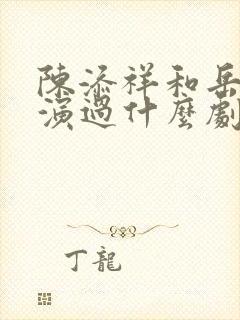 陳添祥和岳
演過什麼劇
丁龍